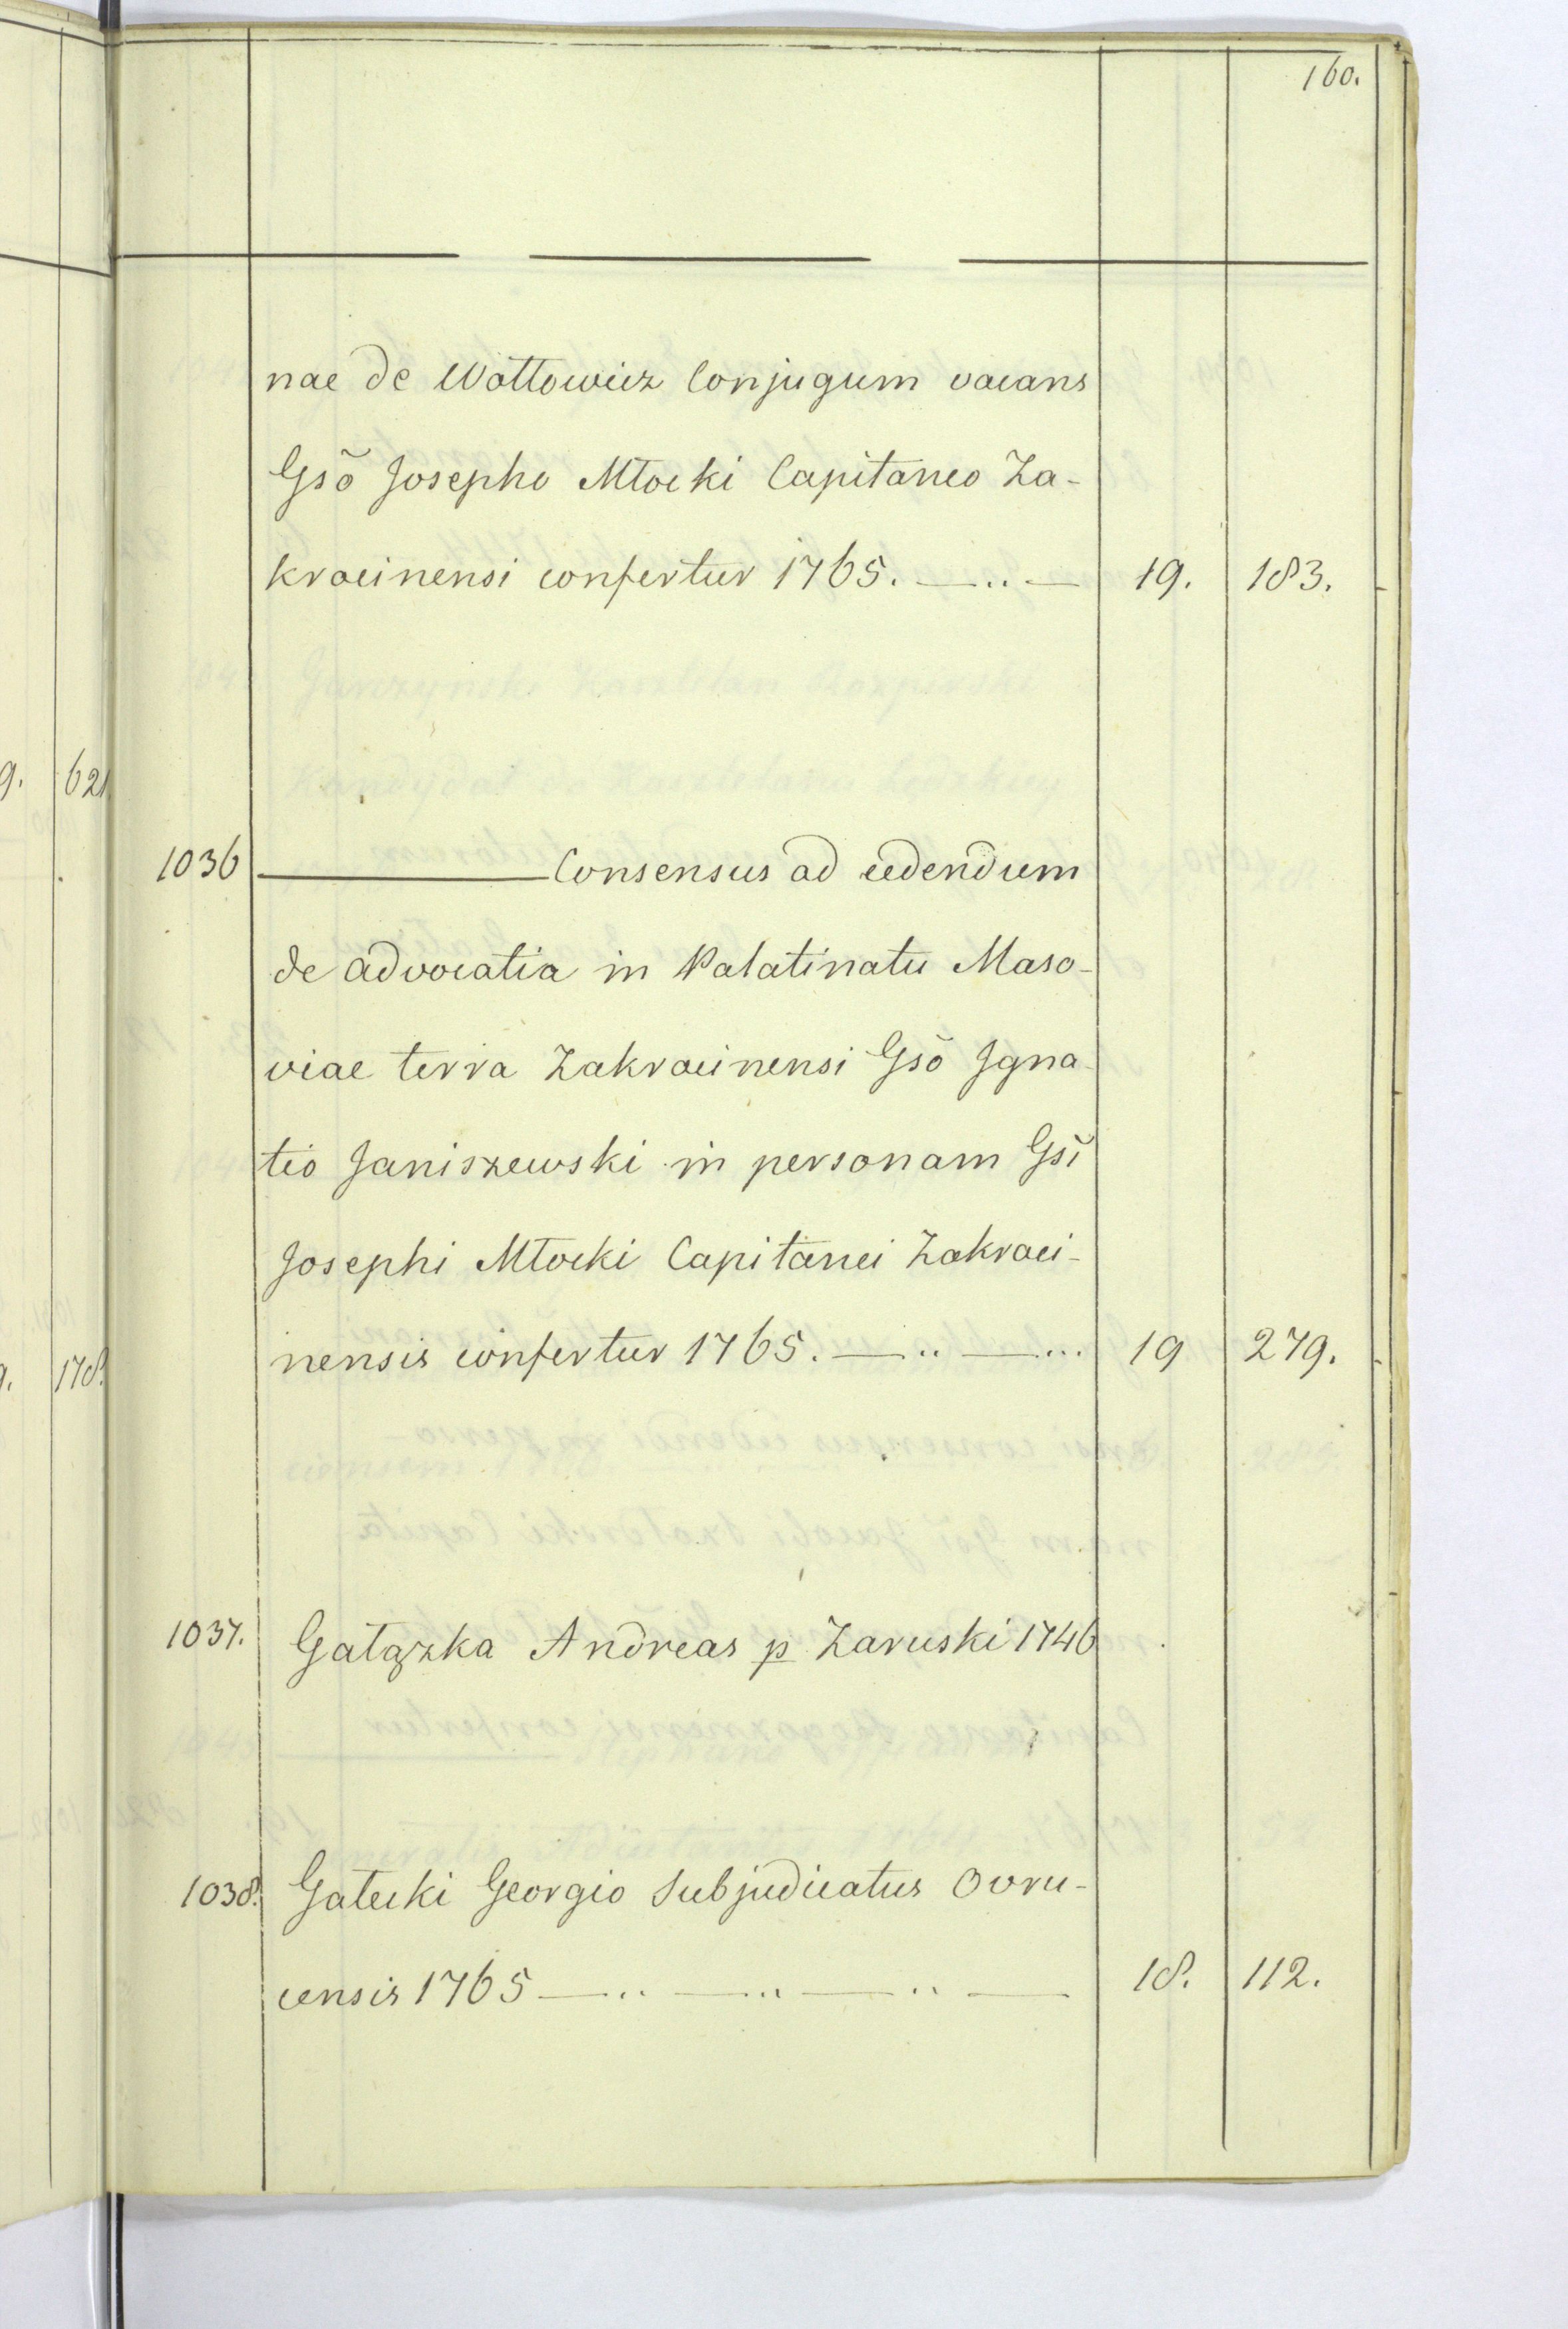 160.
nae de Wottowicz Conjugum vacans
Gsō Josepho Młocki Capitaneo Za-
krocinensi confertur 1765. —..— 19. 183.
1036 ——— Consensus ad cedendum
de advocatia in Palatinatu Maso-
viae terra Zakrocinensi Gsō Igna-
tio Janiszewski in personam Gsī
Josephi Młocki Capitanei Zakroci-
nensis confertur 1765. —..—... 19 279.
1037. Gałązka Andreas p Zaruski 1746
1038. Gałecki Georgio Subjudicatus Ovru-
censis 1765 —..—..—..— 18. 112.
9. 621
178.